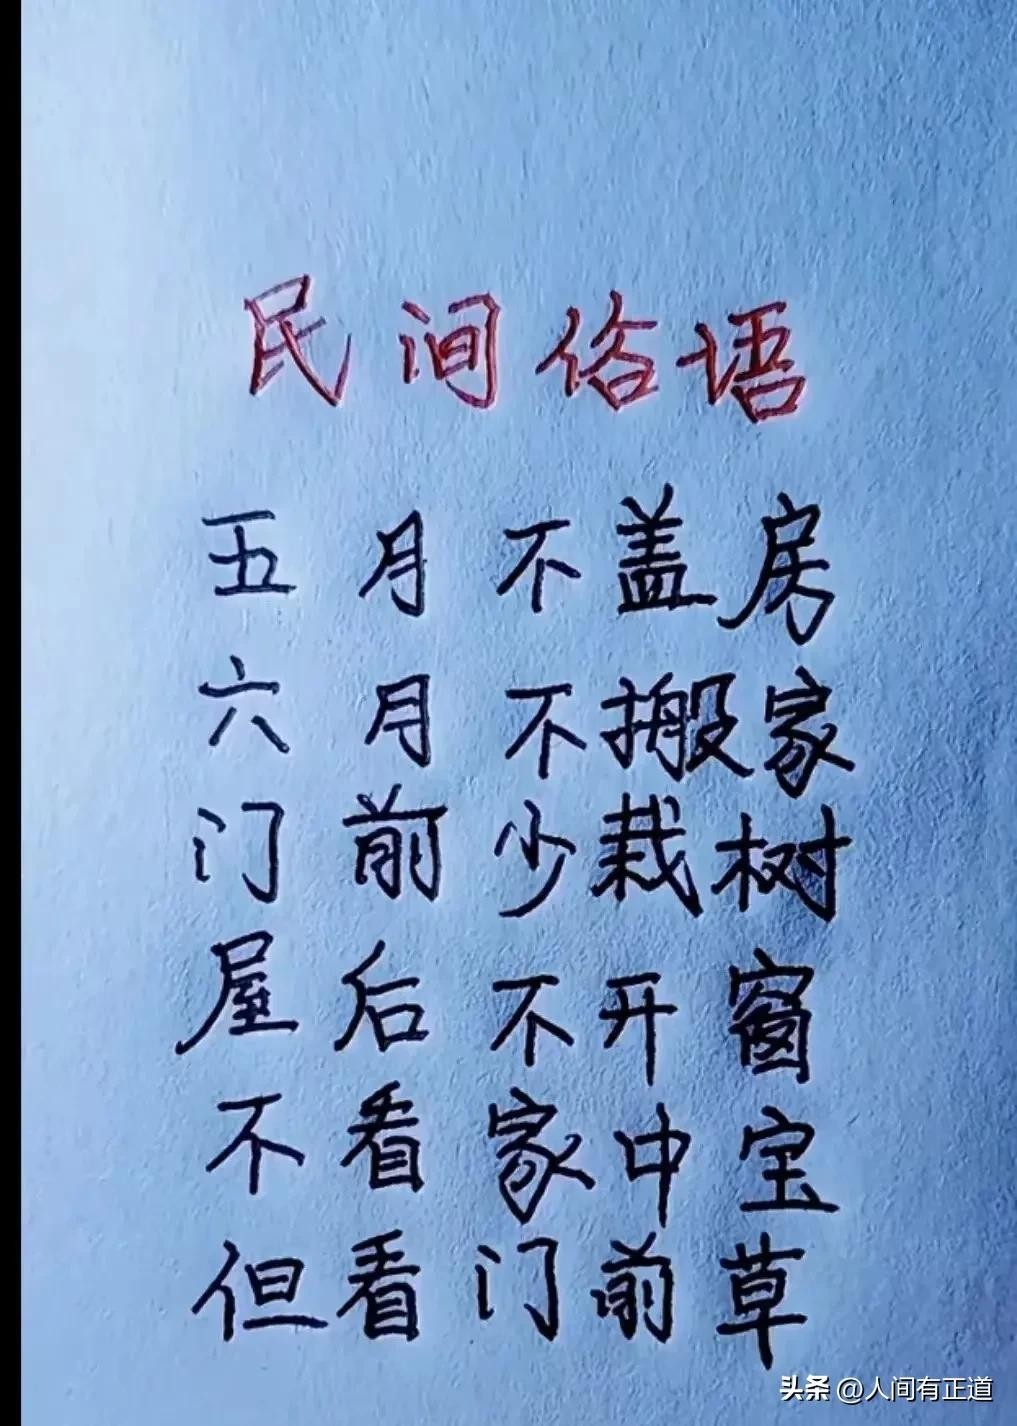 民间俗语
五月不盖房
六月不搬家
门前少栽树
屋后不开窗
不看家中宝
但看门前草
头条 @人间有正道